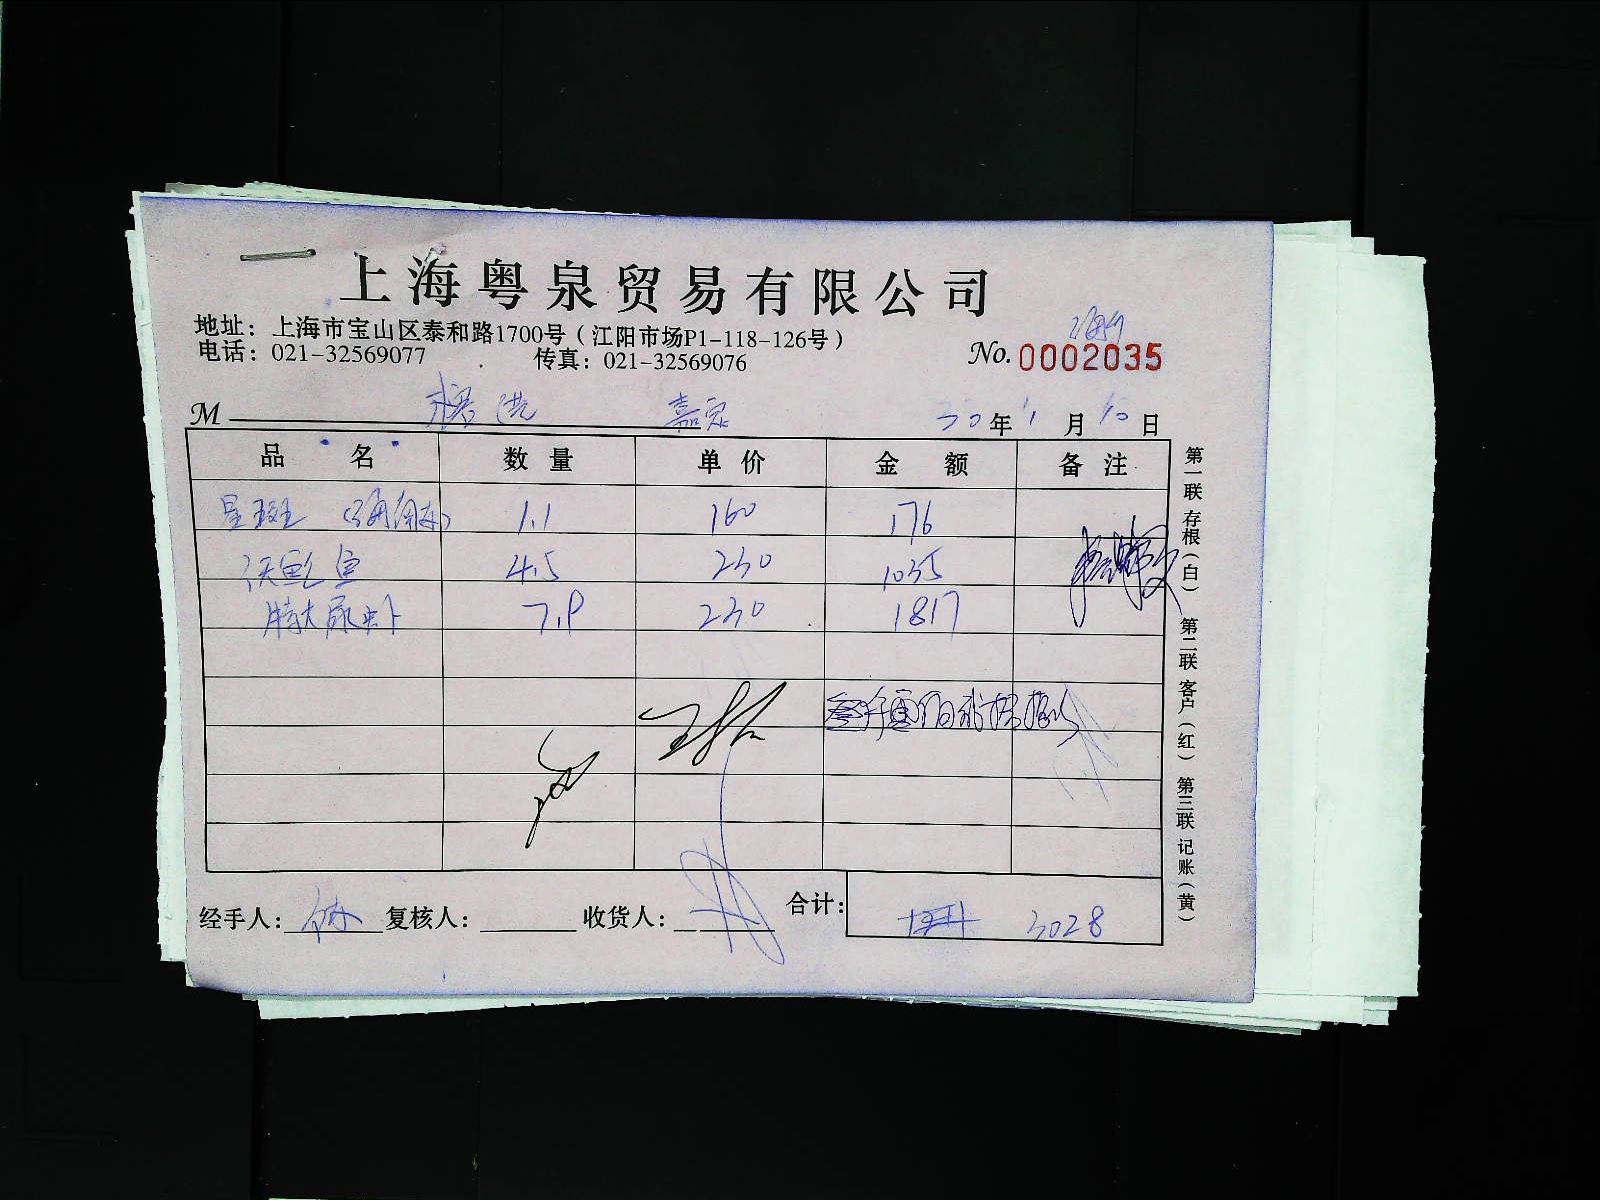 上海粤泉贸易有限公司
地址：上海市宝山区泰和路1700号（江阳市场P1-118-126号）
电话：021-32569077 传真：021-32569076
No. 0002035
M 嘉定 20年11月10日
品名 数量 单价 金额 备注
星斑 1.1 160 176
鲍鱼 4.5 230 1035
特大尿虾 7.9 230 1817
合计： 3028
经手人： 复核人： 收货人：
第一联存根（白） 第二联客户（红） 第三联记账（黄）